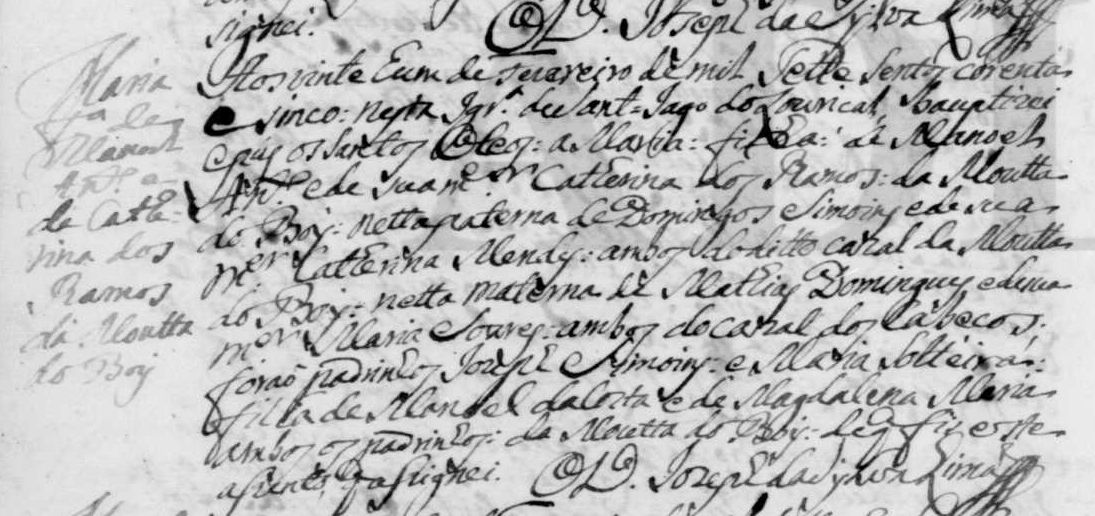 signei. O P. Joseph da Sylva Lima
Maria
fa le
Manoel
Anto. e
de Cathe=
rina dos
Ramos
da Moutta
do Boy
Aos vinte E um de fevareiro de mil Sette Sentos corenta
e sinco: nesta Igra. de Sant=Iago do Louriçal, Bauptizei
e pus os santos Oleos: a Maria: filha: de Manoel
Anto. e de sua mer. Catherina dos Ramos: da Moutta
do Boy: netta paterna de Domingos Simoins e de sua
mer Catherina Mendes: ambos do ditto cazal da Moutta
do Boy: netta materna de Mathias Domingues e de sua
mer Maria Soares: ambos do cazal dos Cabecos:
forão padrinhos Joseph Symoins: e Maria solteira:
filha de Manoel da Costa e de Magdalena Maria
ambos os padrinhos: da Moutta do Boy: de q fis este
asento, q asignei. O P. Joseph da Sylva Lima